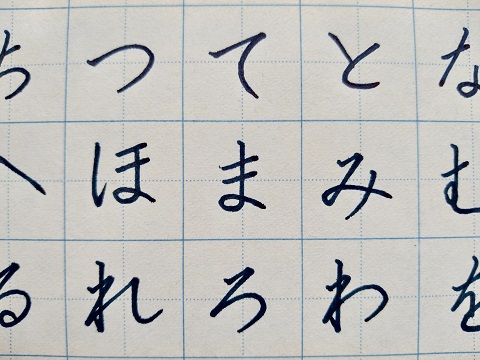 ちつてとな
へほまみむ
るれろわを